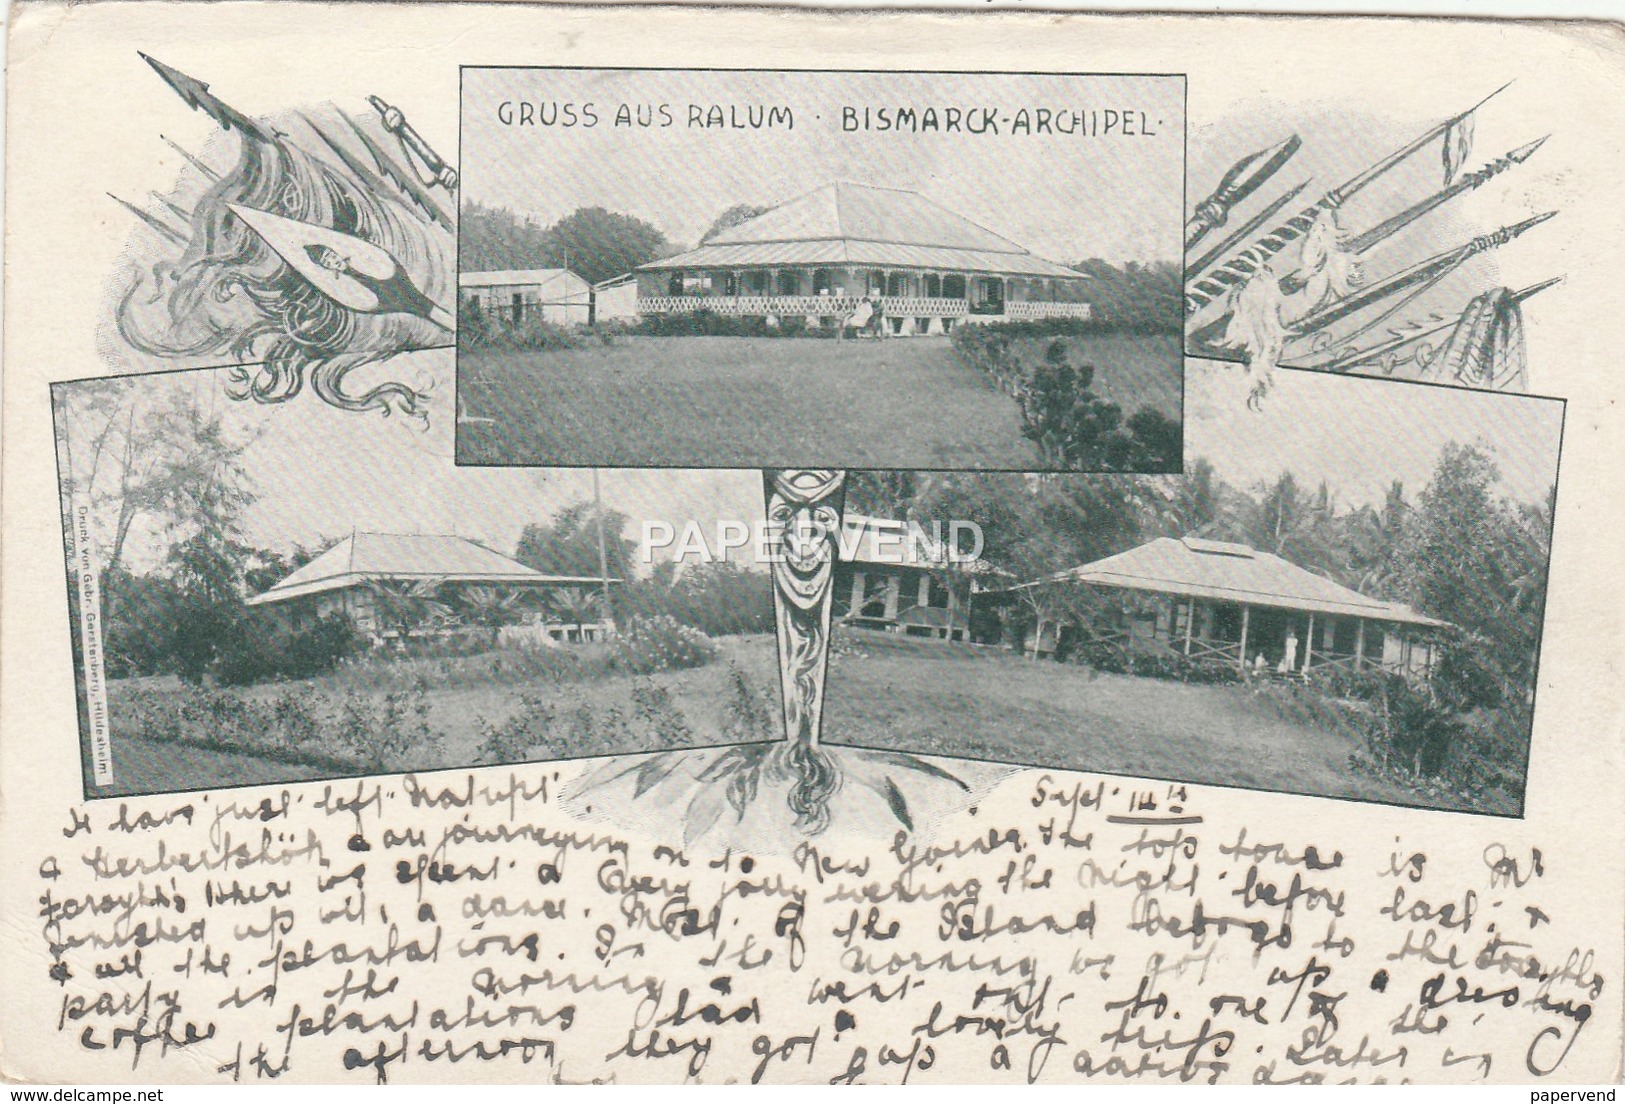 GRUSS AUS RALUM · BISMARCK-ARCHIPEL·
Druck von Gebr. Gerstenberg, Hildesheim
PAPERVEND
Sept 14th
have just left Matupi
& Herbertshöh & are journeying on to New Guinea. The top house is Mr
Forsyth's where we spent a very jolly evening the night before last, &
finished up with a dance. Most of the Island belongs to the Forsyths
& all the plantations. In the morning we got up a driving
party in the morning & went out to one of the
coffee plantations had a lovely trip. Later in
the afternoon they got up a native
www.delcampe.net
papervend